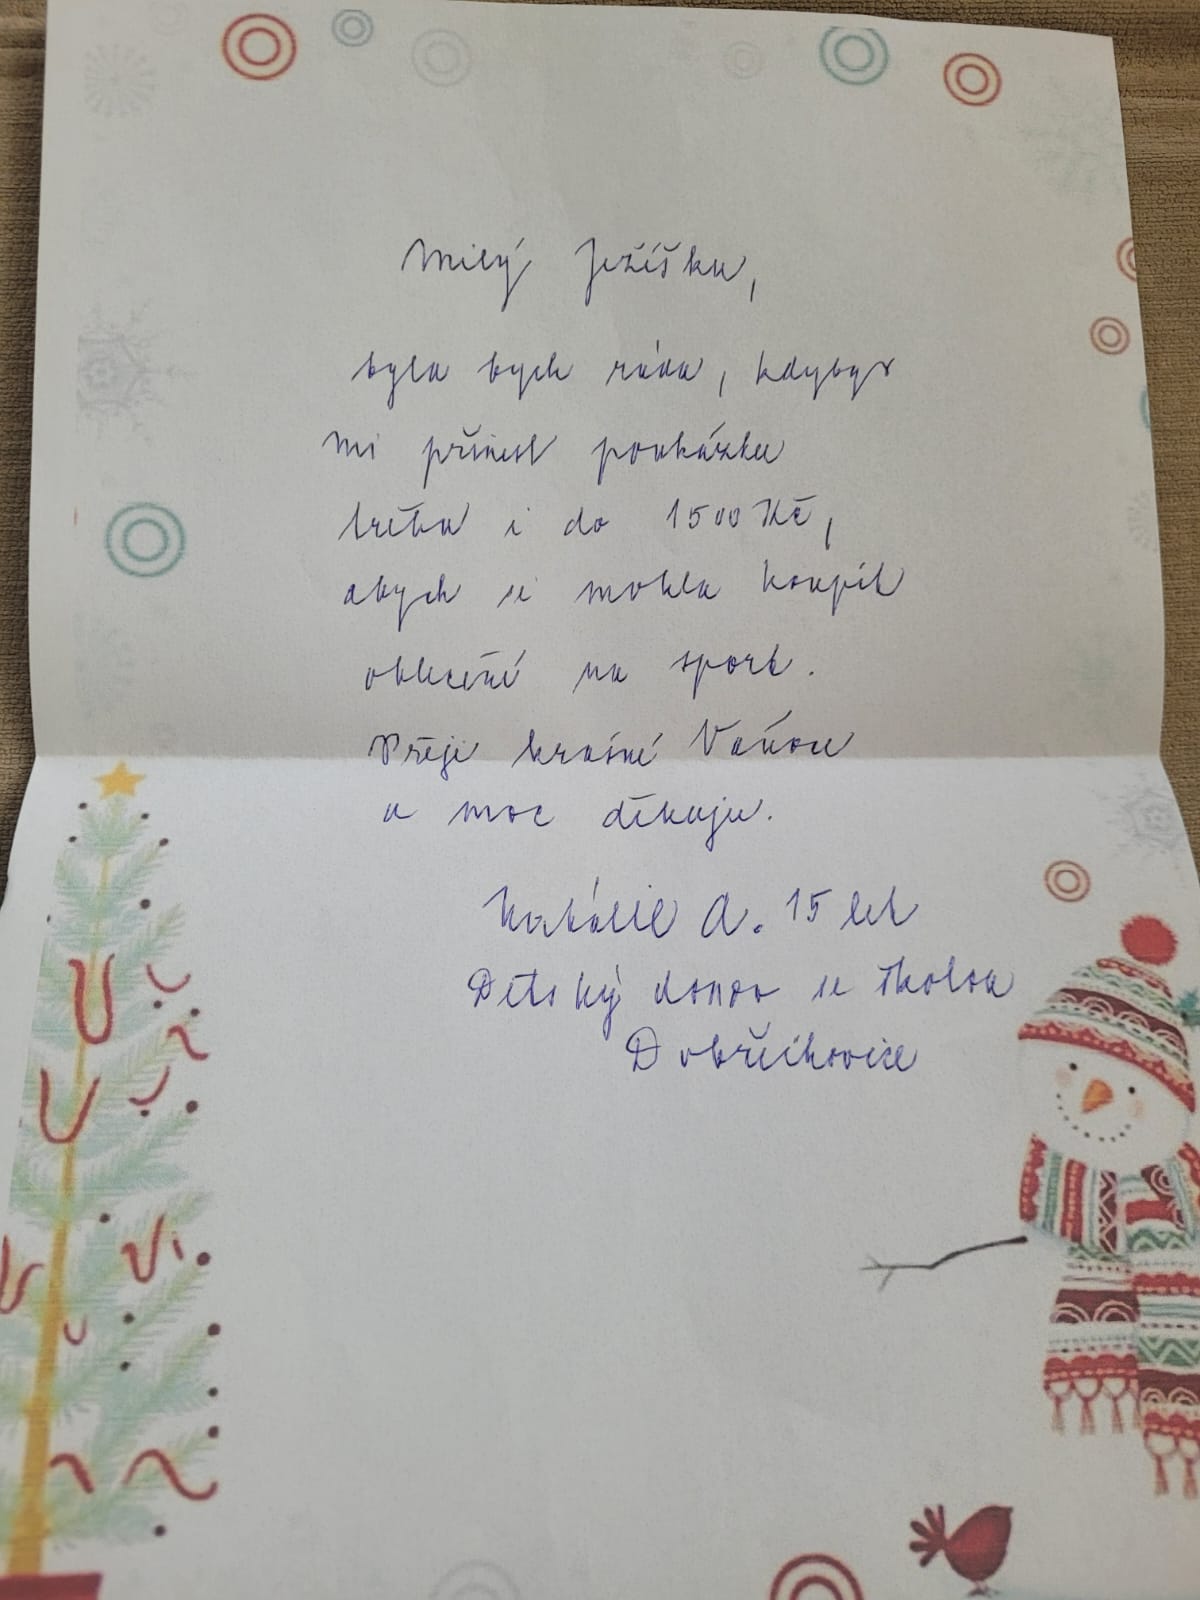 Milý Ježíšku,
byla bych ráda, kdybys
mi přinesl poukázku
třeba i do 1500 Kč,
abych si mohla koupit
oblečení na sport.
Přeji krásné Vánoce
a moc děkuju.
Natálie A. 15 let
Dětský domov se školou
Dobřichovice